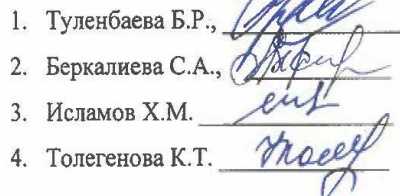 1. Туленбаева Б.Р.,
2. Беркалиева С.А.,
3. Исламов Х.М.
4. Толегенова К.Т.